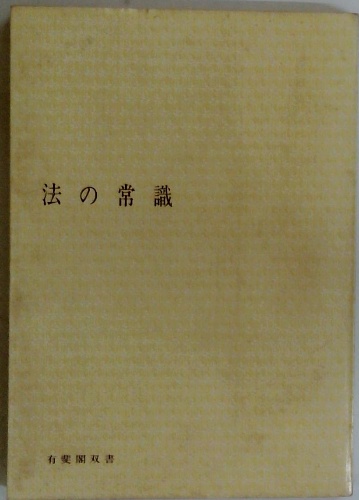 法の常識
有斐閣双書